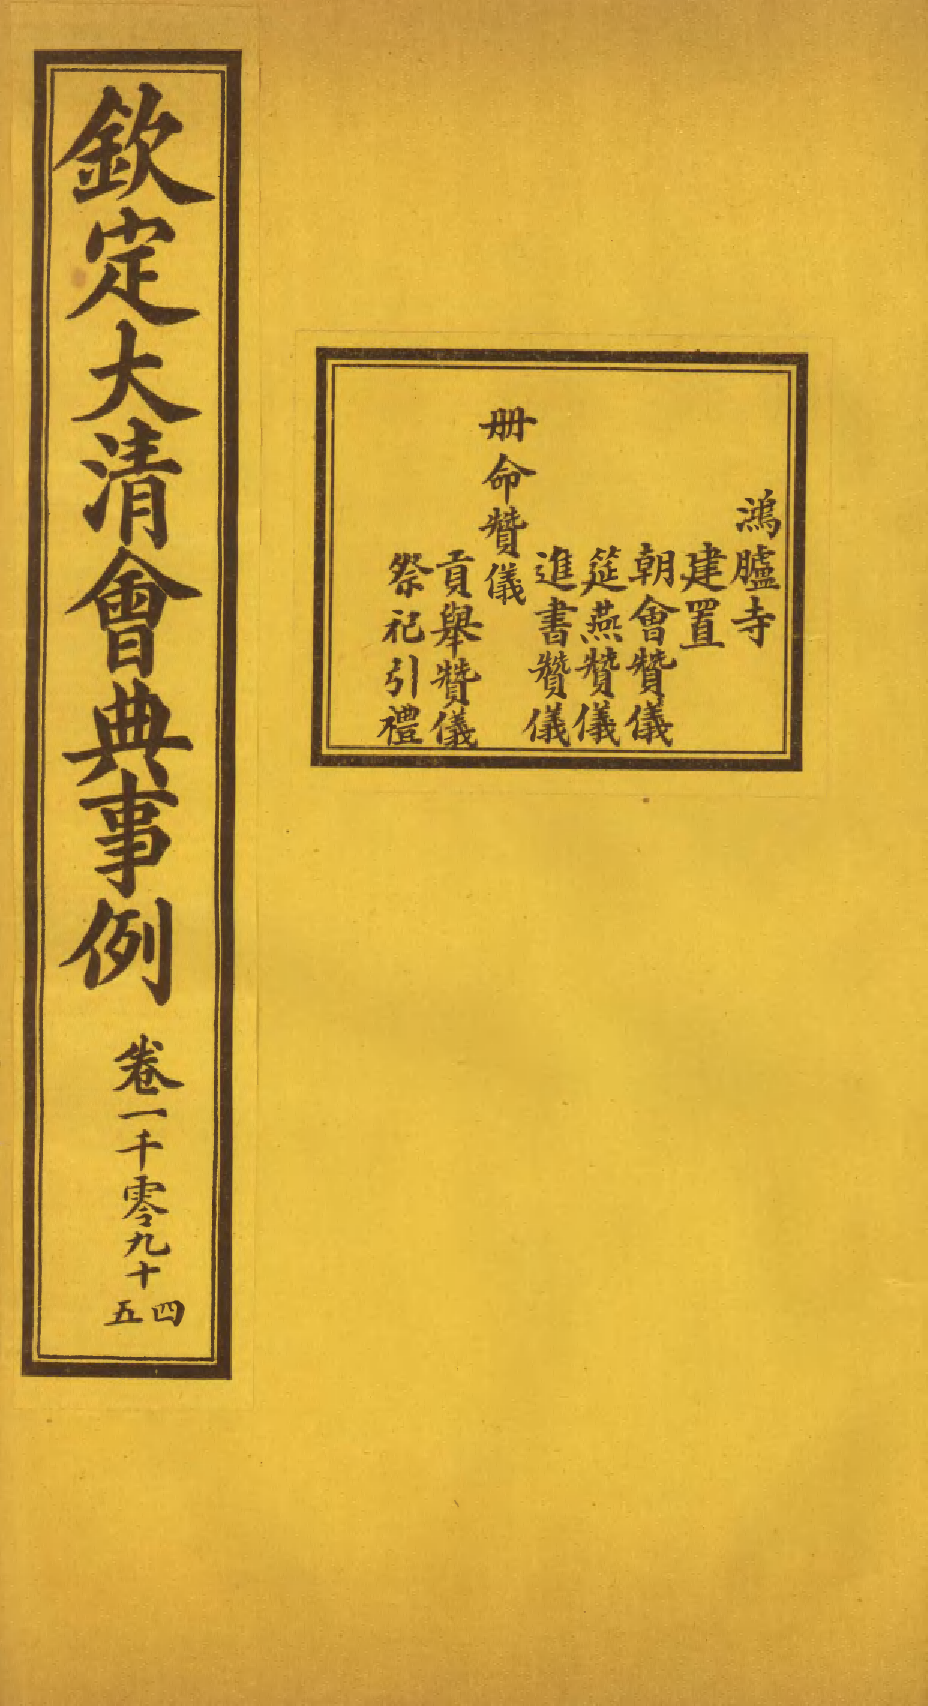 鴻臚寺
建置
朝會贊儀
筵燕贊儀
進書贊儀
册命贊儀
貢舉贊儀
祭祀引禮
欽定大清會典事例
卷一千零九十四
五